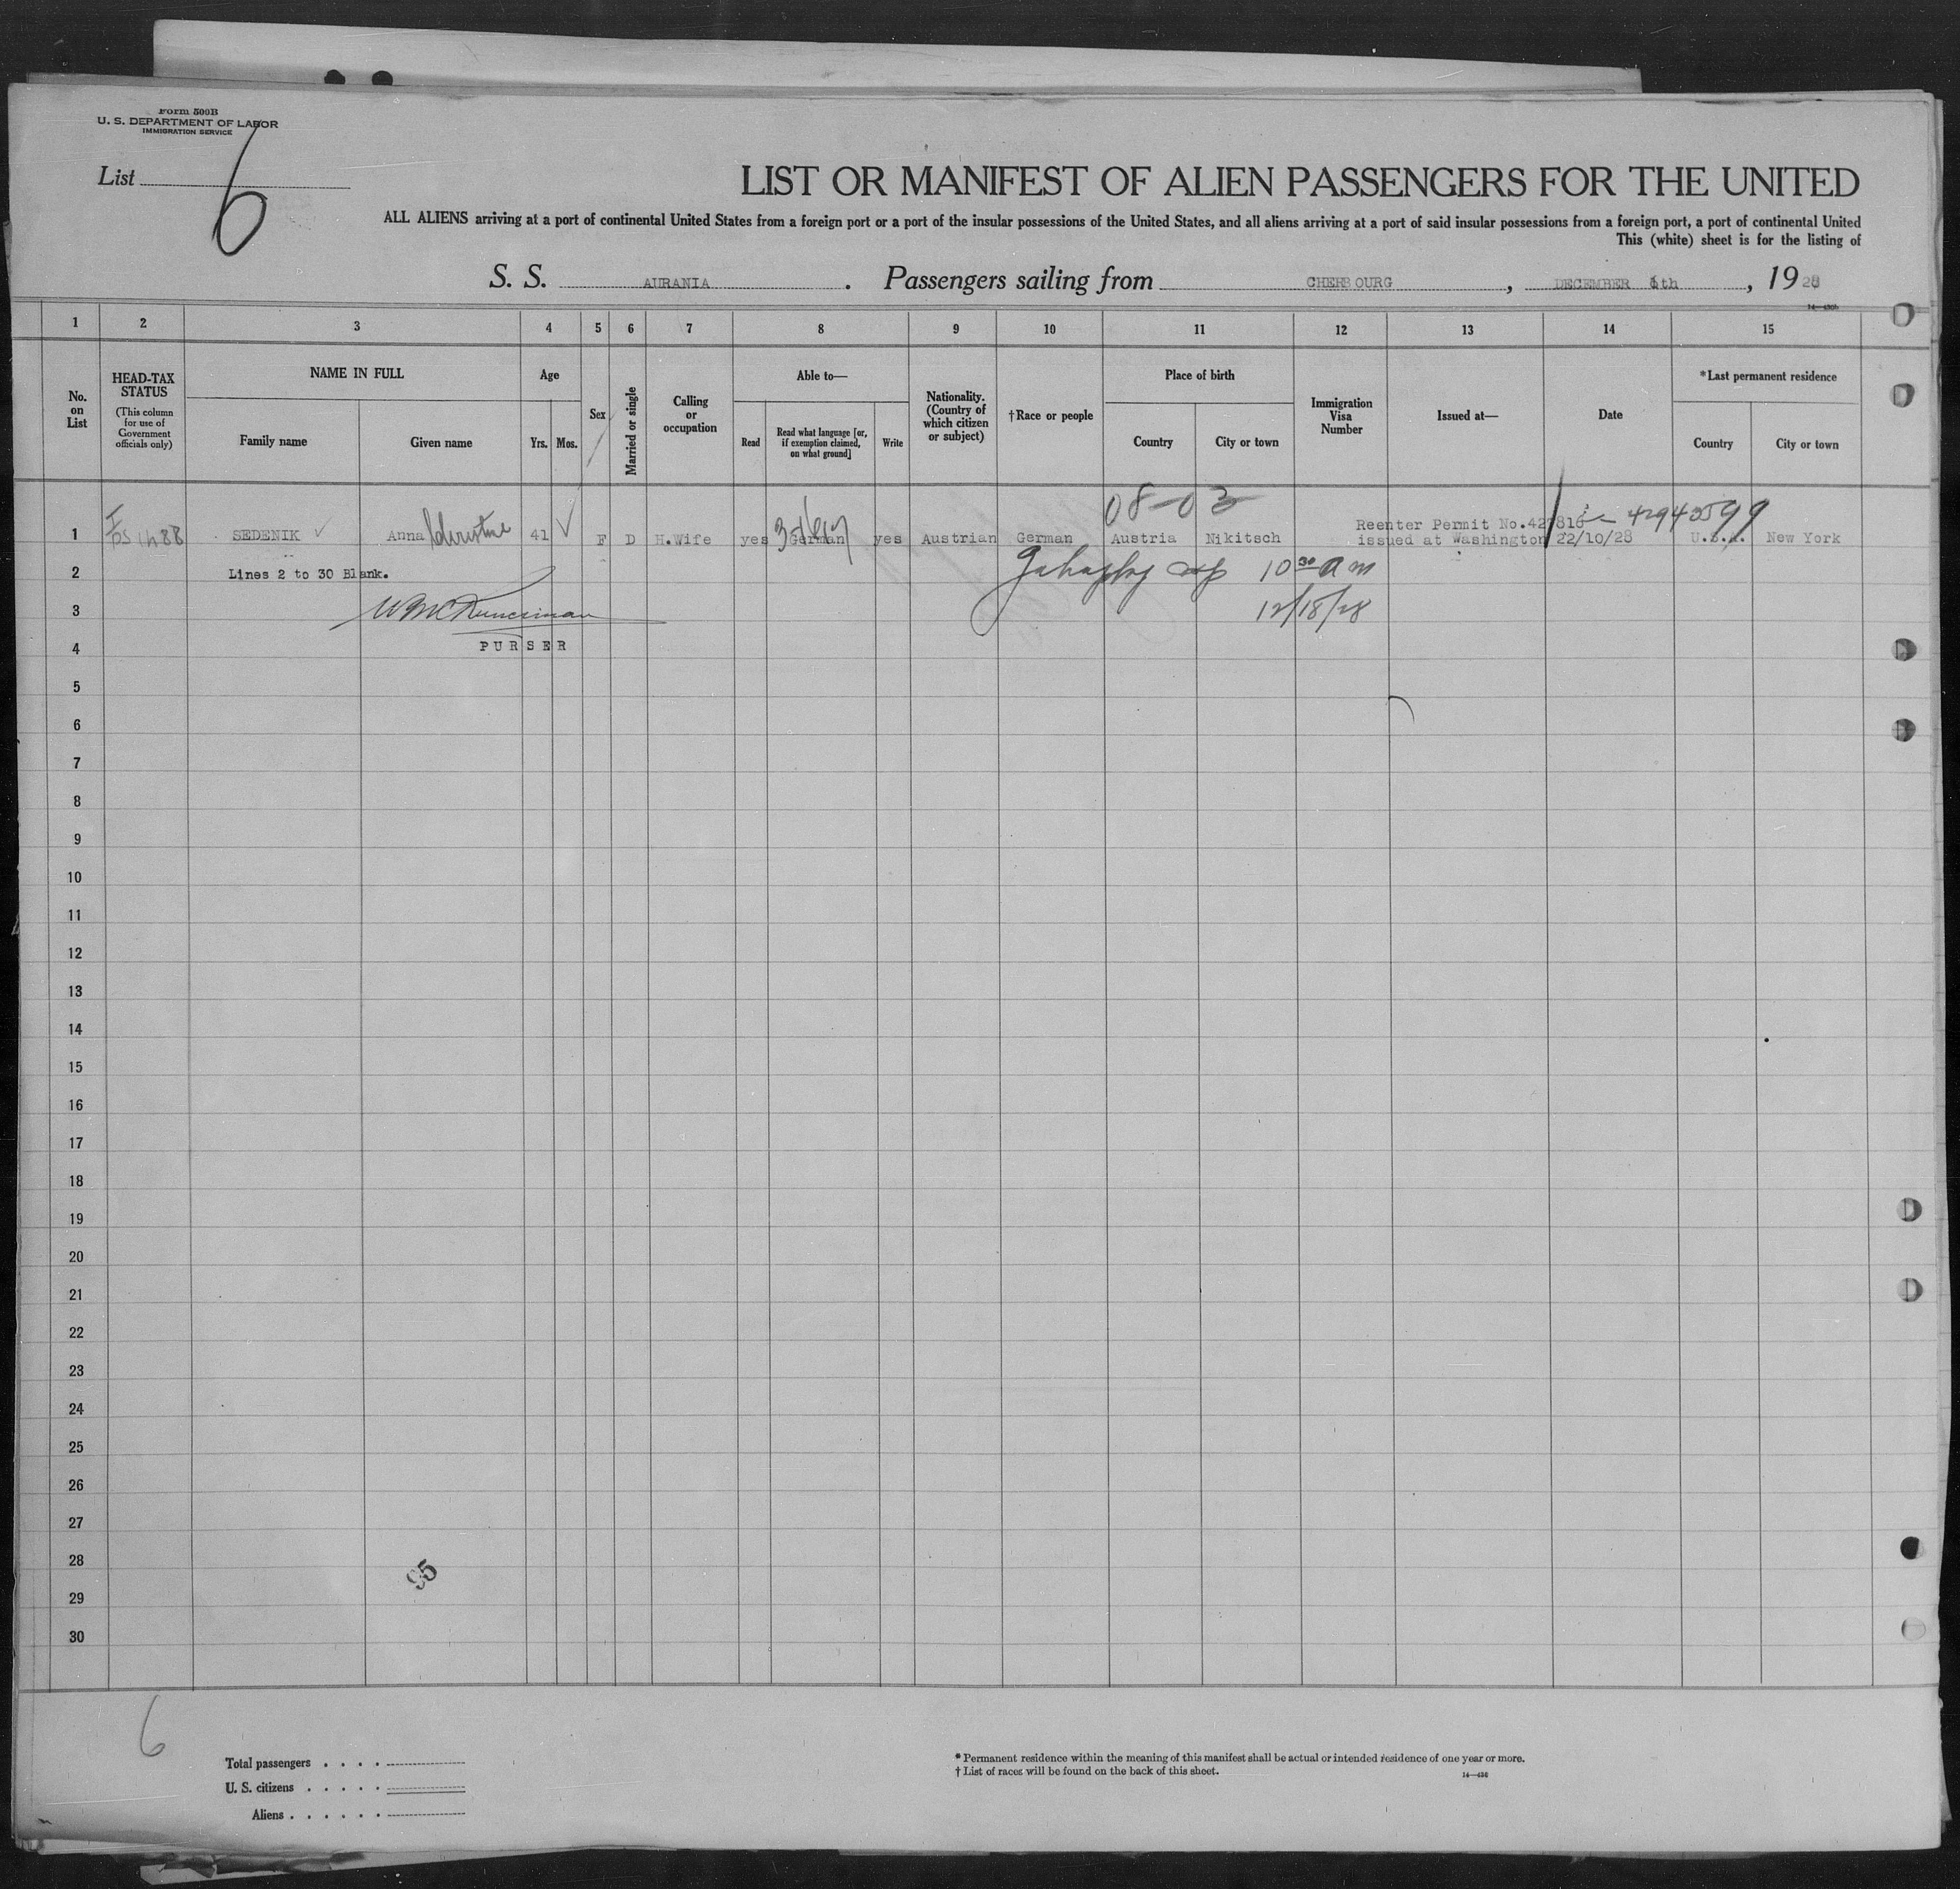 Form 500B
U. S. DEPARTMENT OF LABOR
IMMIGRATION SERVICE
List 6
LIST OR MANIFEST OF ALIEN PASSENGERS FOR THE UNITED
ALL ALIENS arriving at a port of continental United States from a foreign port or a port of the insular possessions of the United States, and all aliens arriving at a port of said insular possessions from a foreign port, a port of continental United
This (white) sheet is for the listing of
S. S. AURANIA. Passengers sailing from CHERBOURG, DECEMBER th, 1928
1 2 3 4 5 6 7 8 9 10 11 12 13 14 15
No. on List
HEAD-TAX STATUS
(This column for use of Government officials only)
NAME IN FULL
Family name
Given name
Age
Yrs. Mos.
Sex
Married or single
Calling or occupation
Able to—
Read
Read what language [or, if exemption claimed, on what ground]
Write
Nationality. (Country of which citizen or subject)
†Race or people
Place of birth
Country
City or town
Immigration Visa Number
Issued at—
Date
*Last permanent residence
Country
City or town
08-03
1 SEDENIK Anna Christine 41 F D H.Wife yes German yes Austrian German Austria Nikitsch Reenter Permit No. issued at Washington 22/10/28 U.S.A. New York
2 Lines 2 to 30 Blank. 10 30 am
3 12/18/28
4 PURSER
5
6
7
8
9
10
11
12
13
14
15
16
17
18
19
20
21
22
23
24
25
26
27
28
95
29
30
6
Total passengers
U. S. citizens
Aliens
* Permanent residence within the meaning of this manifest shall be actual or intended residence of one year or more.
† List of races will be found on the back of this sheet.
14—436